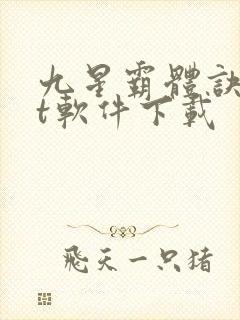 九星霸體訣
t軟件下載
飛天一只猪